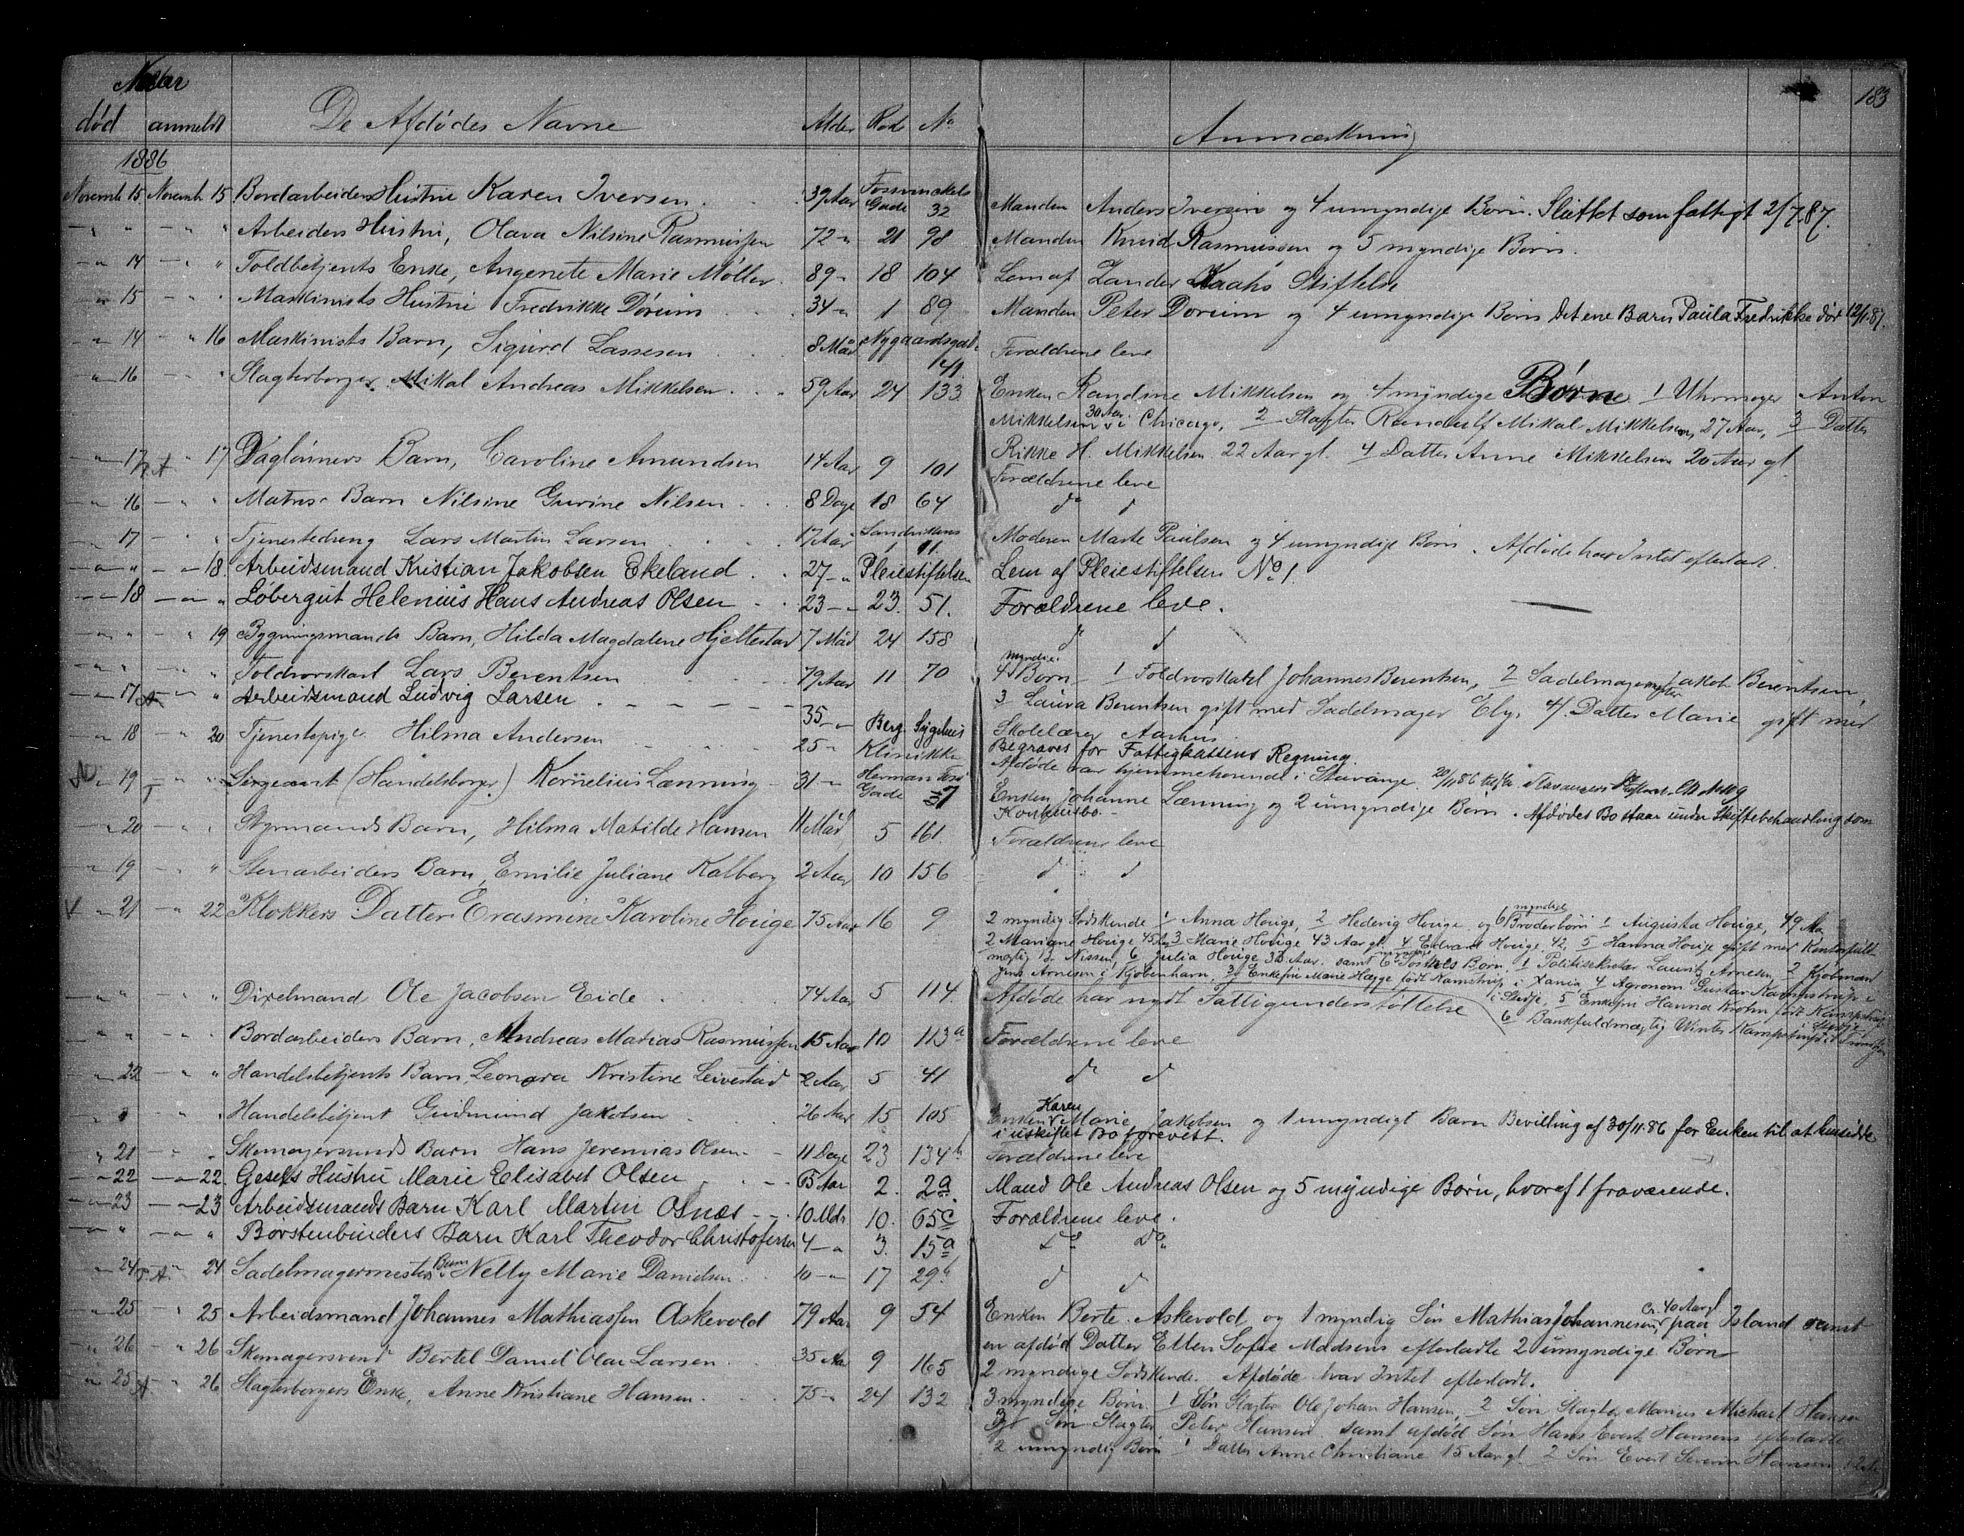 Naar 183
død anmeldt De Afdødes Navne Alder Rode No Anmærkning
1886
Novemb 15 Novemb 15 Bordarbeiders Hustru Karen Iversen 39 Aar Fosswinckels Gade 32 Manden Anders Iversen og 4 umyndige Børn. Sluttet som fattigt 2/7 87.
" " " " Arbeiders Hustru, Olava Nilsine Rasmussen 72 " 21 98 Manden Knud Rasmussen og 5 myndige Børn.
" 14 " " Toldbetjents Enke, Angenete Marie Møller 89 " 18 104 Lem af Zander Kaahs Stiftelse
" 15 " " Maskinists Hustru Fredrikke Døreim 34 " 1 89 Manden Peter Doreim og 4 umyndige Børn det ene Barn Paula Fredrikke død 12/1 87.
" 14 " 16 Maskinists Barn, Sigurd Lassesen 8 Mdr Nygaardsgade 141 Forældrene leve
" 16 " " Slagterborger Mikal Andreas Mikkelsen 59 Aar 24 133 Enken Randine Mikkelsen og 4 myndige Børn 1 Uhrmager Anton
Mikkelsen 30 Aar i Chicago, 2 Slagter Randulf Mikal Mikkelsen, 27 Aar, 3 Datter
Rikke H. Mikkelsen 22 Aar gl. 4 Datter Anne Mikkelsen 20 Aar gl
" 17 " 17 Daglønners Barn, Caroline Amundsen 14 Aar 9 101 Forældrene leve
" 16 " " Matrs Barn Nilsine Gurine Nilsen 8 Dage 18 64 do d
" 17 " " Tjenestedreng Lars Martin Larsen 17 Aar Sandvikens 11. Moderen Marte Paulsen og 4 umyndige Børn. Afdøde har Intet efterladt.
" " " 18. Arbeidsmand Kristian Jakobsen Ekeland 27 " Pleiestiftelsen Lem af Pleiestiftelsen No 1.
" 18 " " Løbergut Helenius Hans Andreas Olsen 23 " 23. 51. Forældrene leve.
" " " 19 Bygningsmands Barn, Hilda Magdalene Hjeltestad 7 Mdr 24 158 d d
" " " " Toldrorskarl Lars Berentsen 79 Aar 11 70 4 myndie. Børn 1 Toldrorskarl Johannes Berentsen, 2 Sadelmagermester Jakob Berentsen,
" 17 " " Arbeidsmand Ludvig Larsen 35 " Berg. Sygehus 3 Laura Berentsen gift med Sadelmager Eby, 4. Datter Marie gift med
Skolelærer Aarhus.
" 18 " 20 Tjenestepige Hilma Andersen 25 " Klinikke Begraves for Fattigkassens Regning.
Afdøde var hjemmehørende i Stavanger. 20/11 86
" 19 " " Sergeant (Handelsborger) Kornelius Lænning 31 " Herman Foss Gade 37 Enken Johanne Lænning og 2 umyndige Børn. Afdødes Bo staar under Skiftebehandling som
Konkursbo
" 20 " " Styrmands Barn, Hilma Matilde Hansen 11 Mdr 5 161. Forældrene leve
" 19 " " Stenarbeiders Barn, Emilie Juliane Kalberg 2 Aar 10 156 d d
" 21 " 22 Klokkers Datter Erasmine Karoline Houge 75 Aar 16 9 2 myndig Sødskende 1 Anna Houge, 2 Hedevig Houge og 6 myndige Broderbørn 1 Augusta Houge, 49 Aar
2 Mariane Houge 45 Aar 3 Marie Houge 43 Aar gl, 4 Edvard Houge 42, 5 Hanna Houge gift med Kontorfuld
mægtig Nissen, 6 Julia Houge 32 Aar. samt 6 Søsters Børn 1 Politisekretær Lauritz Arnesen 2 Kjøbmand
Jens Arnesen i Kjøbenhavn, 3 Enkefru Marie Hagge født Kamstrup i Xania, 4 Agronom Gustav Kamstrup i
i Skedje, 5 Enkefru Hanna Krohn født Kamstrup
i Skedje,
6 Bankfuldmægtig Winter Kamstrup
" " " " Direlmand Ole Jacobsen Eide 74 Aar 5 114. Afdøde har nydt Fattigunderstøttelse
" " " " Bordarbeiders Barn, Andreas Matias Rasmussen 15 Aar 10 113a Forældrene leve
" 22 " " Handelsbetjents Barn Leonora Kristine Leivestad 2 Aar 5 41 do d
" " " " Handelsbetjent Gudmund Jakobsen 26 Aar 15 105 Enken Karen Marie Jakobsen og 1 umyndigt Barn Bevilling af 30/11 86 for Enken til at hensidde
i uskiftet Bo forevist.
" 21 " " Skomagersvends Barn Hans Jeremias Olsen 11 Dage 23 134b Forældrene leve
" 22 " 22. Gesels Hustru Marie Elisabet Olsen 65 Aar 2. 2a. Mand Ole Andreas Olsen og 5 myndige Børn, hvoraf 1 fraværende.
" 23 " 23 Arbeidsmands Barn Karl Martin Osnæs 10 Mdr 10. 65c Forældrene leve.
" " " " Børstenbinders Barn Karl Theodor Christofersen 4 " 3. 15a do do
" 24 " 24 Sadelmagermesters Barn Nelly Marie Danielsen 10 " 17 29b d d
" 25 " 25 Arbeidsmand Johannes Mathiassen Askevold 79 Aar 9 54 Enken Berte Askevold og 1 myndig Søn Mathias Johannesen, Ca. 40 Aar gl paa Island samt
en afdød Datter Ellen Sofie Madsens efterladte 2 umyndige Børn
" 26 " 26 Skomagersvend Bertel Daniel Olai Larsen 35 Aar 9 165 2 myndige Sødskende. Afdøde har Intet efterladt.
" 25 " 26 Slagterborgers Enke, Anne Kristiane Hansen 75 " 24 132 3 myndige Børn 1 Søn Slagter Ole Johan Hansen, 2 Søn Slagter Marius Michael Hansen
3 Søn Slagter Peter Hansen samt afdød Søn Hans Evert Hansens efterladte
2 umyndig Børn 1 Datter Anne Christiane 15 Aar gl 2 Søn Evert Severin Hansen